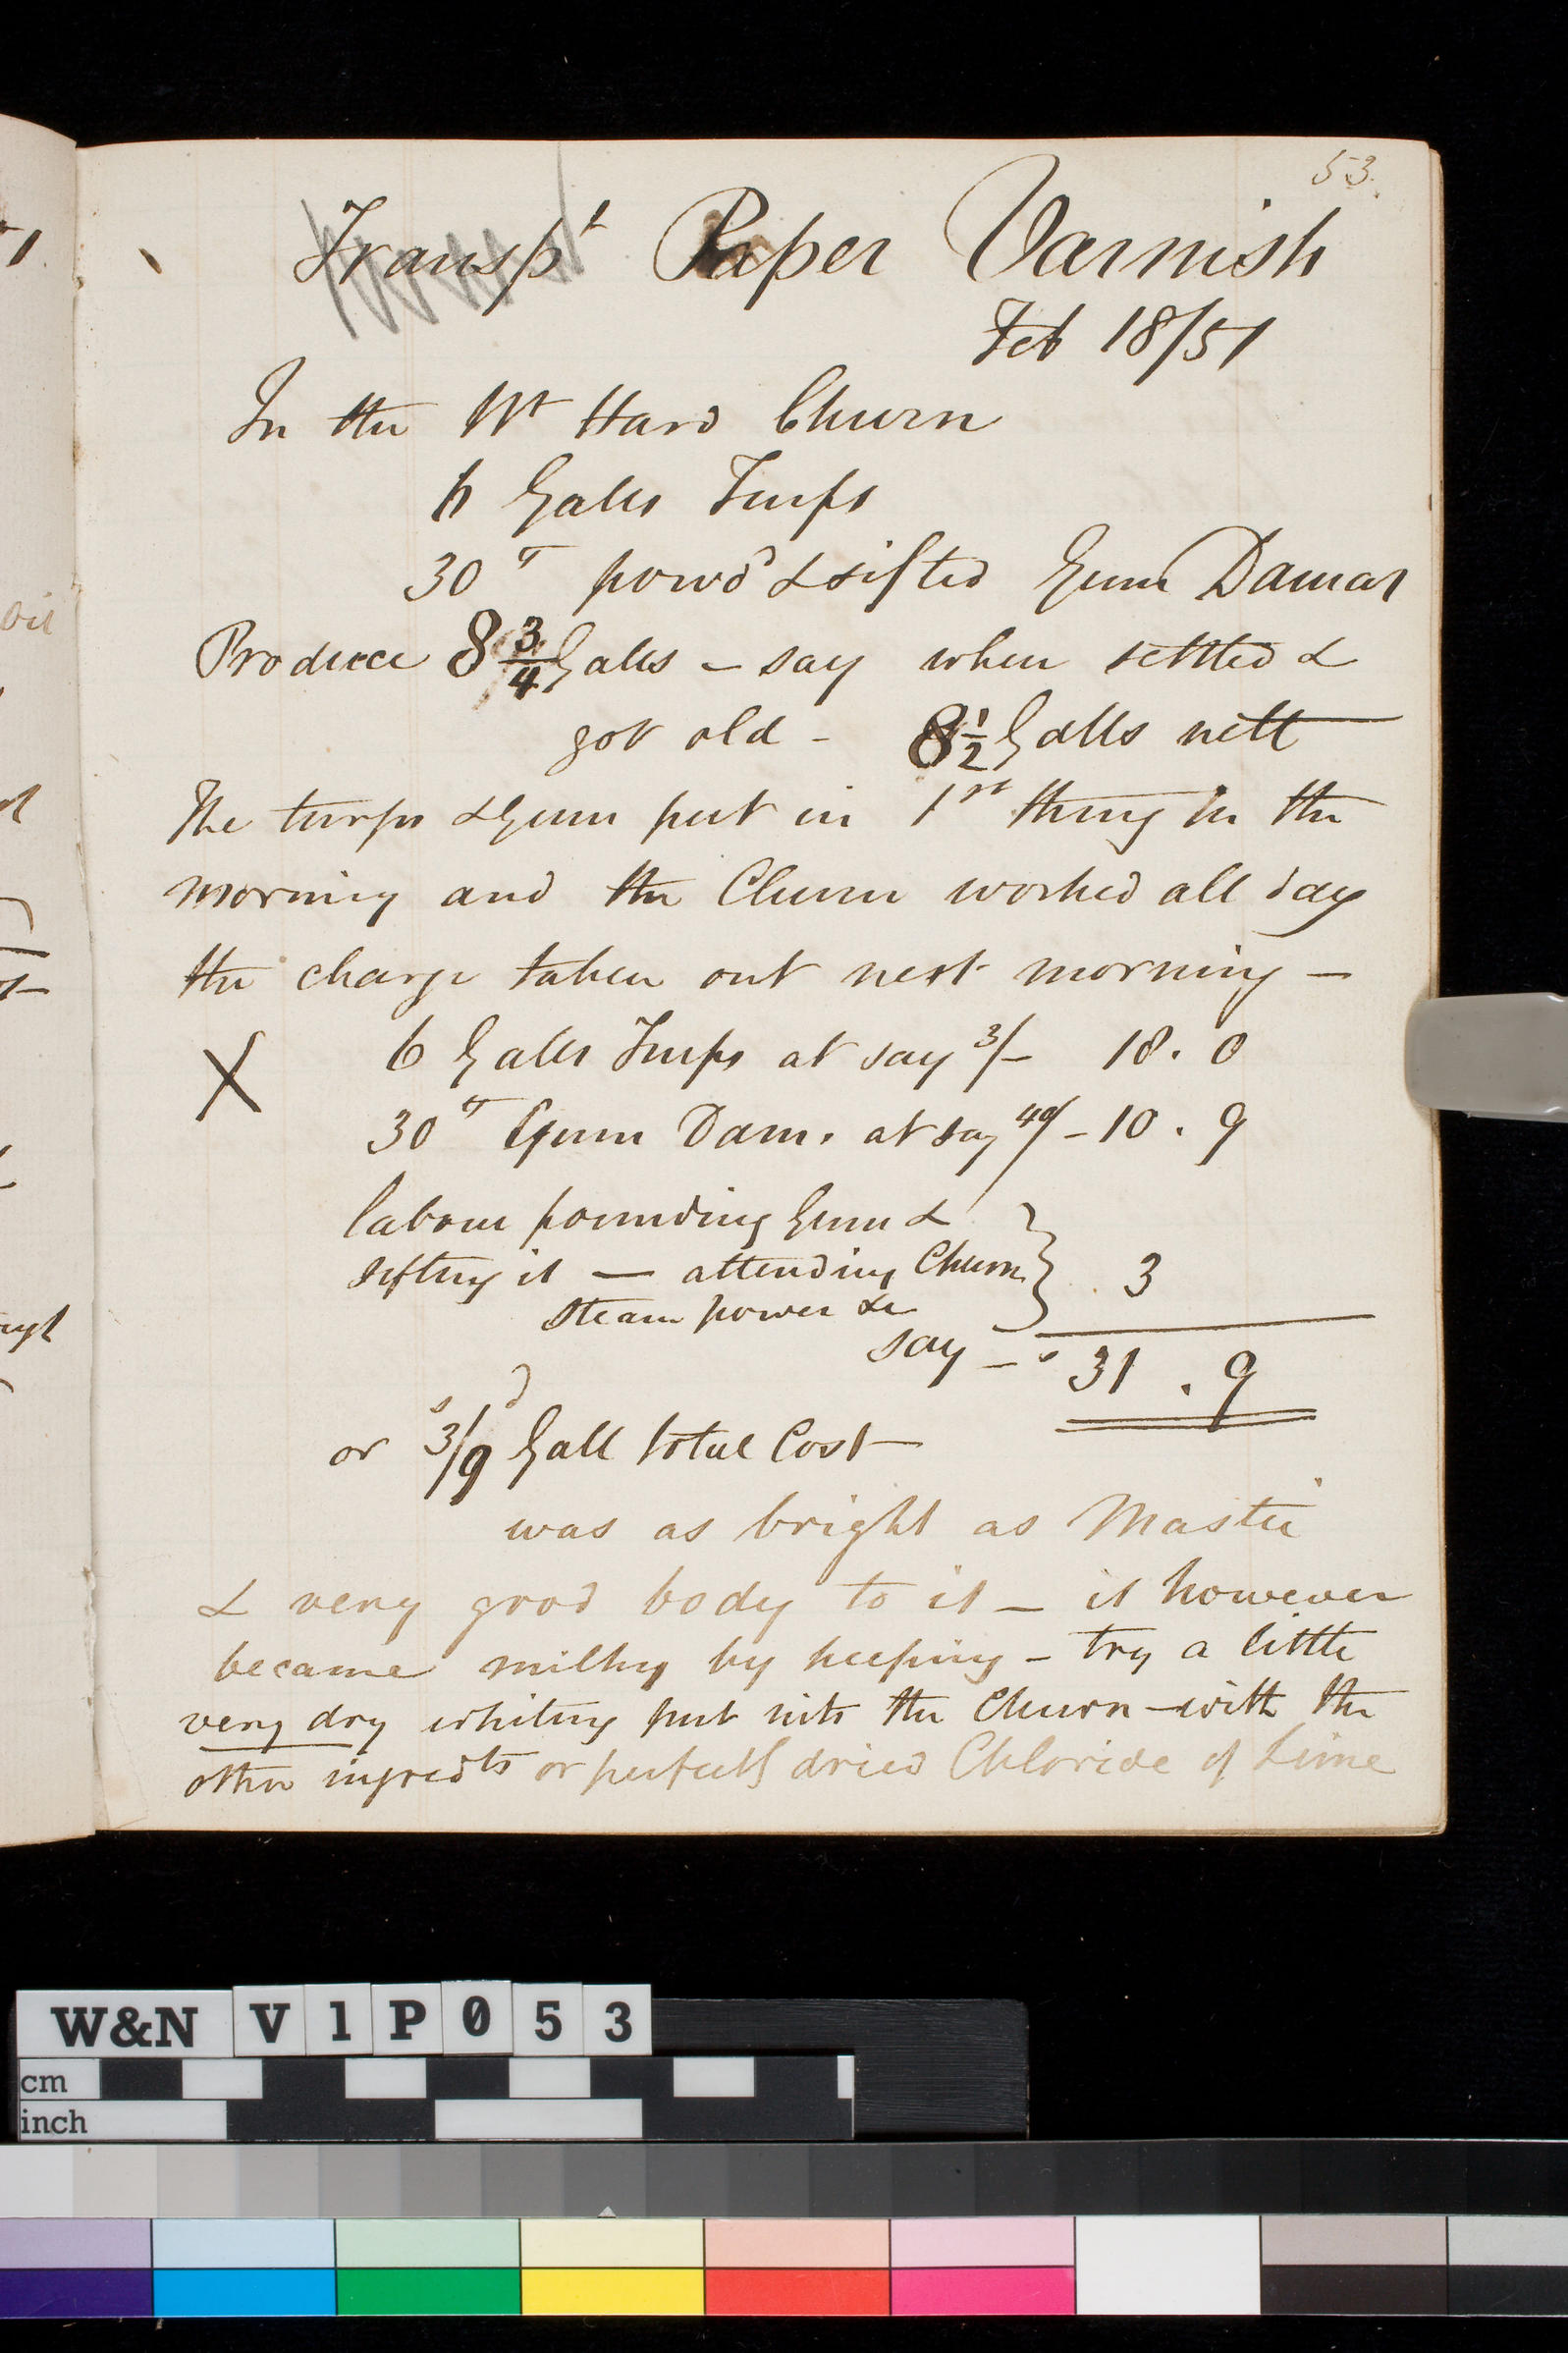 53.
Transpt Paper Varnish
Feb 18/51
In the Wt Hard Churn
6 Galls Turps
30 lb powdd & sifted Gum Damar
Produce 8 3/4 Galls – say when settled &
got old – 8 1/2 Galls nett
The turps & Gum put in 1st thing in the
morning and the Churn worked all day
the charge taken out next morning –
X 6 Galls Turps at say 3/– 18 . 0
30 lb Gum Dam. at say 40/– 10 . 9
labour pounding Gum &
sifting it — attending Churn } 3
steam power &c
say – s 31 . 9
or s3/9d Gall total Cost
was as bright as Mastic
& very good body to it – it however
became milky by keeping – try a little
very dry whiting put into the Churn – with the
other ingredts or perfectly dried Chloride of Lime
oil
W&N V1P053
cm
inch